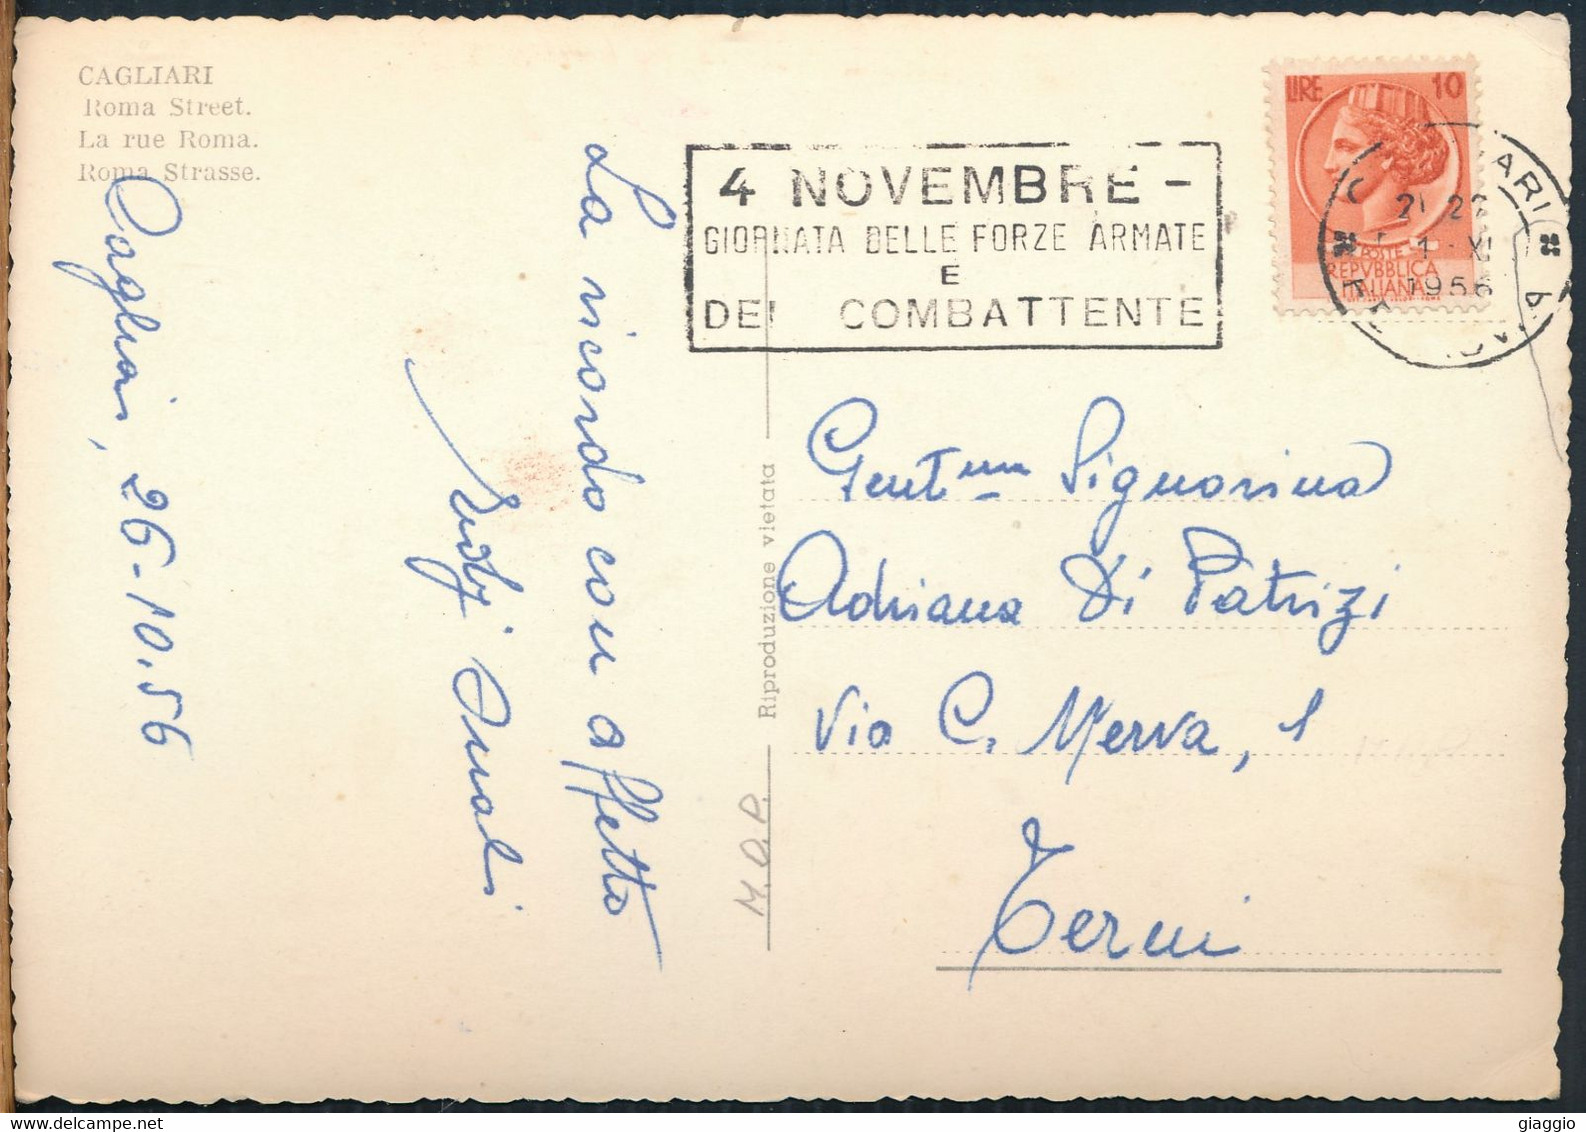 CAGLIARI
Roma Street.
La rue Roma.
Roma Strasse.
Cagliari, 26-10.56
La ricordo con affetto
Riproduzione vietata
M.O.P.
4 NOVEMBRE -
GIORNATA DELLE FORZE ARMATE
E
DEL COMBATTENTE
LIRE 10
POSTE
REPVBBLICA
ITALIANA
21 22
1 · XI
1956
Gent.ma Signorina
Adriana Di Patrizi
Via C. Merva, 1
Terni
giaggio